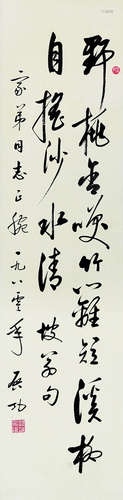 野桃含咲竹籬短溪柳
自搖沙水清 坡翁句
家弟同志正腕 一九八零年 启功